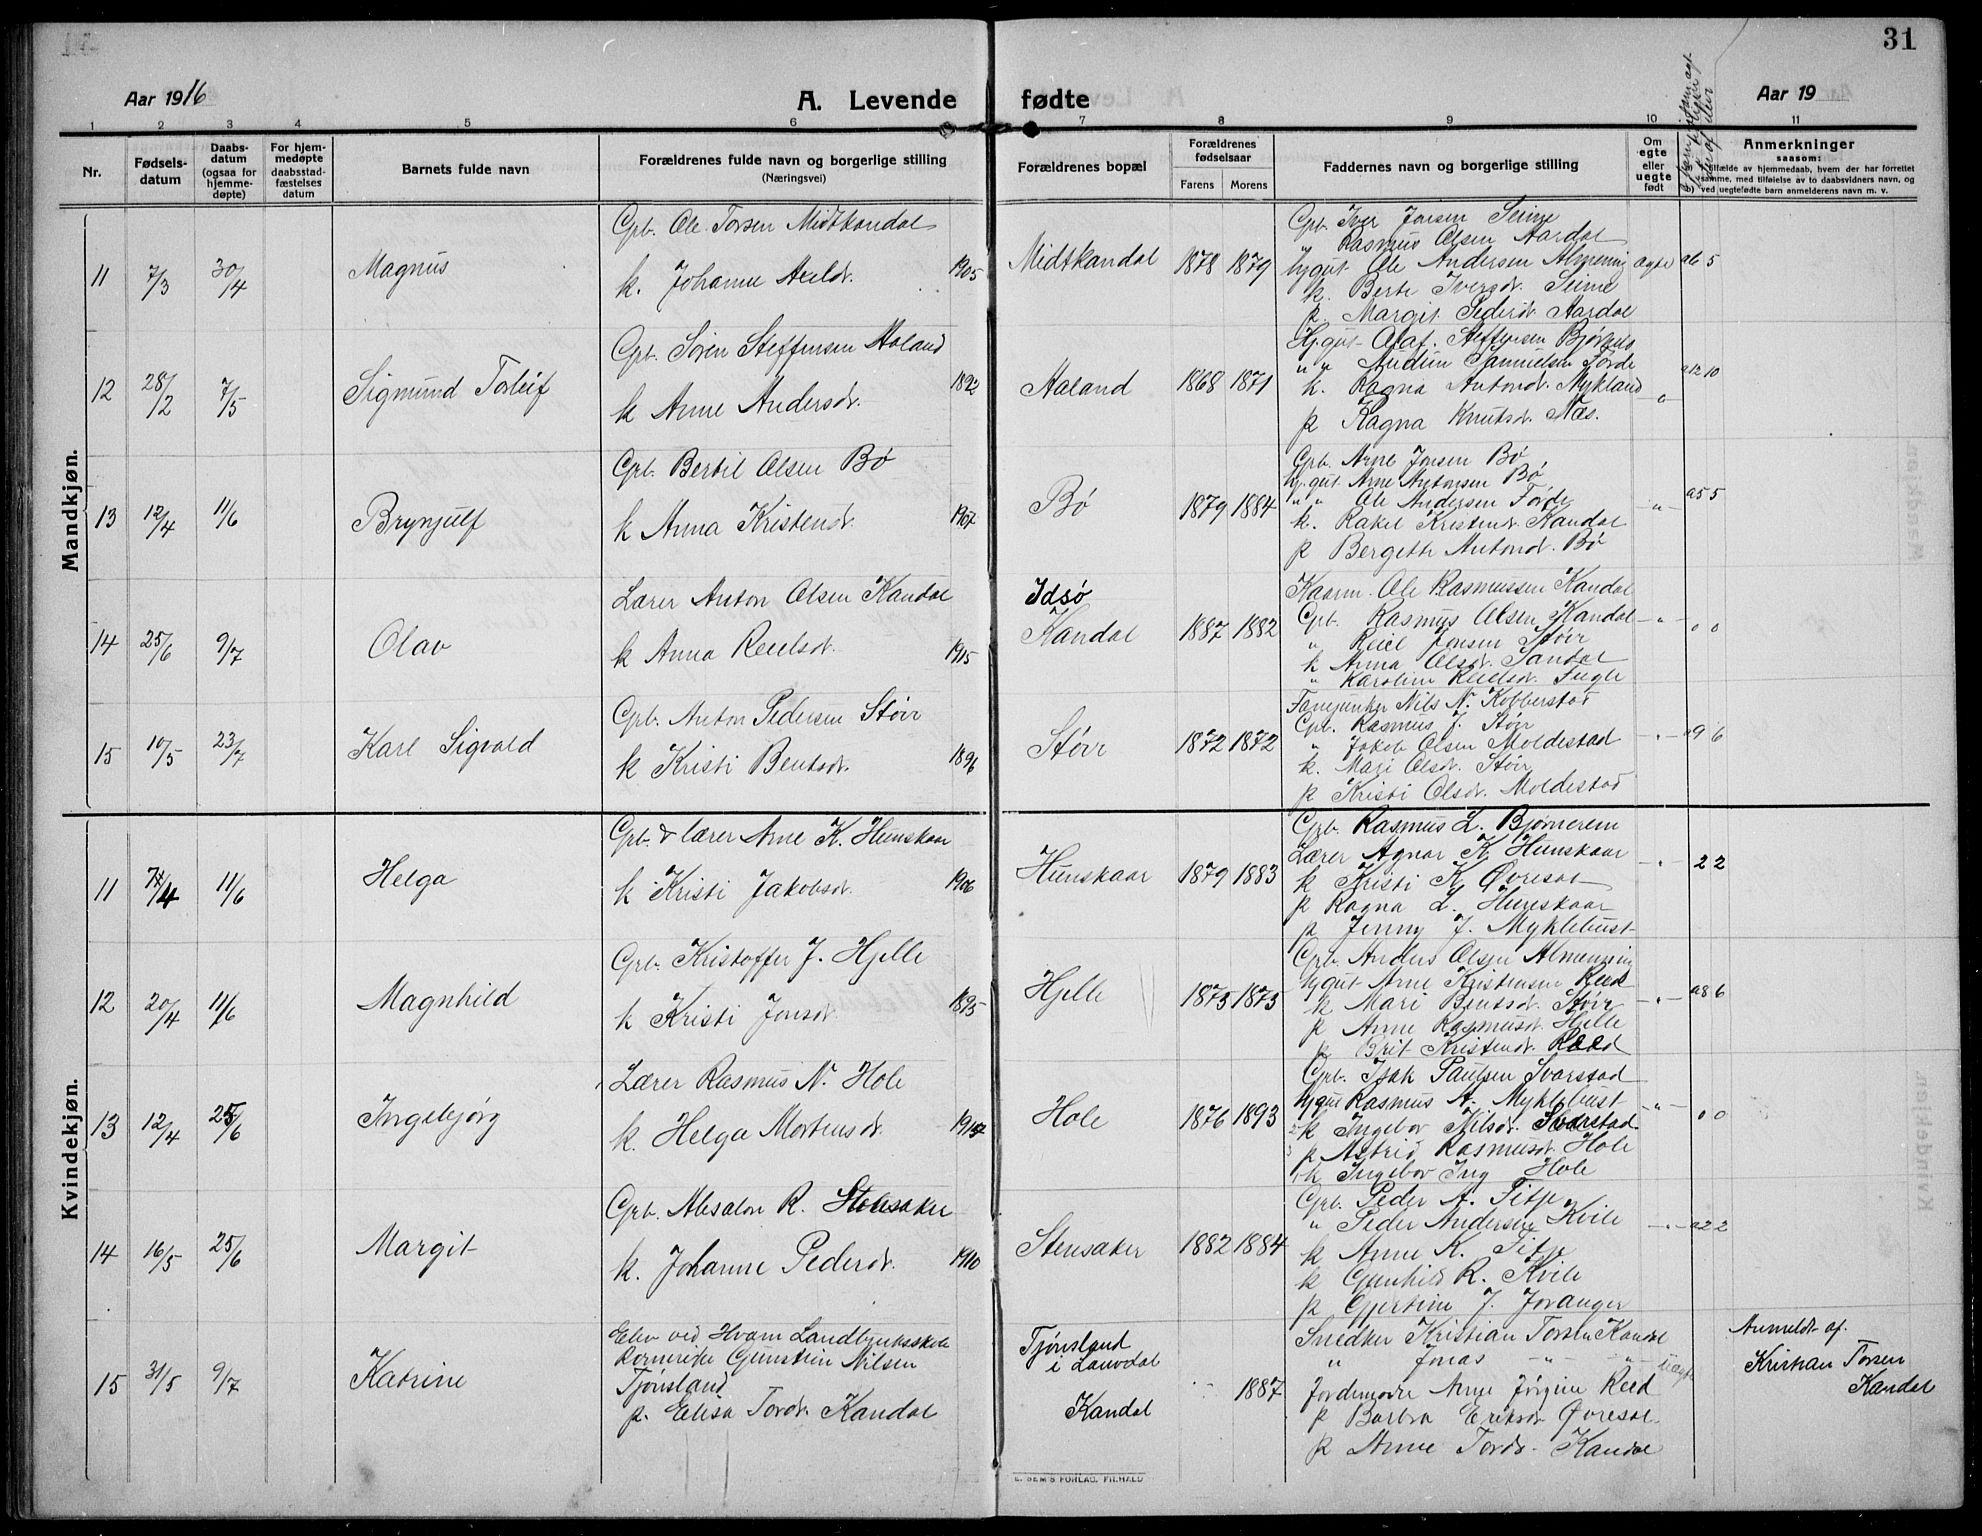 31
Aar 1916
A. Levende fødte
Aar 19
1 2 3 4 5 6 7 8 9 10 11
Nr.
Fødsels-
datum
Daabs-
datum
(ogsaa for
hjemme-
døpte)
For hjem-
medøpte
daabsstad-
fæstelses
datum
Barnets fulde navn
Forældrenes fulde navn og borgerlige stilling
(Næringsvei)
Forældrenes bopæl
Forældrenes
fødselsaar
Farens Morens
Faddernes navn og borgerlige stilling
Om
egte
eller
uegte
født
Anmerkninger
saasom:
tilfælde av hjemmedaab, hvem der har forrettet
samme, med tilføielse av to daabsvidners navn, og
ved uegtefødte barn anmelderens navn m. v.
Mandkjøn.
11 7/3 30/4 Magnus
Grb. Ole Torsen Midtkandal
k. Johanne Axelsdr. 1905
Midtkandal 1878 1879
Grb. Iver Jonsen Seime
Rasmus Olsen Aardal
Ygut. Ole Andersen Almening
k. Berte Iversdr. Seime
p. Margit Pedersdr. Aardal
ægte a6 5
12 28/2 7/5 Sigmund Torleif
Grb. Søren Steffensen Aaland
k Anne Andersdr. 1892
Aaland 1868 1871
Ygut Olaf Steffensen Bjørkelo
" " Audun Samuelsen Førde
k. Ragna Antondr. Mykland
p Ragna Knutsdr. Næs.
" a12 10
13 12/4 11/6 Brynjulf
Grb. Bertil Olsen Bø
k Anna Kristensdr. 1907
Bø 1879 1884
Grb. Arne Jonsen Bø
Ygut. Arne Antonsen Bø
" " Ole Andersen Førde
k. Rakel Kristendr. Kandal
p Bergethe Antondr. Bø
" a5 5
14 25/6 9/7 Olav
Lærer Anton Olsen Kandal
k Anna Reielsdr. 1915
Idsø
Kandal 1887 1882
Kaarm. Ole Rasmussen Kandal
Grb. Rasmus Olsen Kandal
" Reiel Jonsen Støir
k Anna Olsdr. Sandal
" Karoline Reielsdr. Fugle
" 0 0
15 10/5 23/7 Karl Sigvald
Grb. Anton Pedersen Støir
k Kristi Bentsdr. 1896
Støir 1872 1872
Fanejunker Nils N. Kobberstad
Grb. Rasmus J. Støir
" Jakob Olsen Moldestad
k. Mari Olsdr. Støir
p Kristi Olsdr. Moldestad
" a9 6
Kvindekjøn.
11 /4 11/6 Helga
Grb. & lærer Arne K. Hunskaar
k Kristi Jakobsdr. 1906
Hunskaar 1879 1883
Grb. Rasmus L. Bjørnerem
Lærer Agnar K Hunskaar
k Kristi K Øvresat
p Ragna L. Hunskaar
p Jenny J. Myklebust
" 2 2
12 20/4 11/6 Magnhild
Grb. Kristoffer J. Hjelle
k Kristi Jonsdr. 1895
Hjelle 1875 1875
Grb. Anders Olsen Almenning
Ygut Arne Kristensen Reed
k Mari Bentsdr. Støir
p Anne Rasmusdr. Hjelle
p Brit Kristendr. Reed
" a8 6
13 12/4 25/6 Ingebjørg
Lærer Rasmus N. Hole
k. Helga Mortensdr.
Hole 1876 1893
Grb. Isak Paulsen Svarstad
Ygut Rasmus A. Myklebust
k Ingebor Nilsdr. Svarstad
p Astrid Rasmusdr. Hole
k Ingebor Ing Hole
" 0 0
14 16/5 25/6 Margit
Grb. Absalon R. Stensaker
k. Johanne Pedersdr. 1910
Stensaker 1882 1884
Grb. Peder A. Fitje
" Peder Andersen Kvile
k Anne K. Fitje
k Gunhild R. Kvile
p Gjertine J. Joranger
" a2 2
15 31/5 9/7 Katrine
Elev ved Hvam Landbruksskole
Romerike Gunstein Nilsen
Tjønsland
p. Elisa Torsdr. Kandal
Tjønsland
i Lauvdal
Kandal 1887
Snedker Kristian Torsen Kandal
" Jonas — " — — " —
Jordemoder Anne Jørgine Reed
p Barbra Eriksdr Øvresat
p Anne Torsdr. Kandal
uægte
Anmeldt af.
Kristian Torsen
Kandal
E. SEM'S FORLAG, FR.HALD